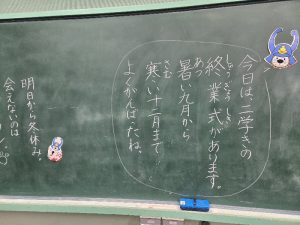 今日は、二学きの
終業式があります。
暑い九月から
寒い十二月まで
よくがんばったね。
明日から冬休み。
会えないのは